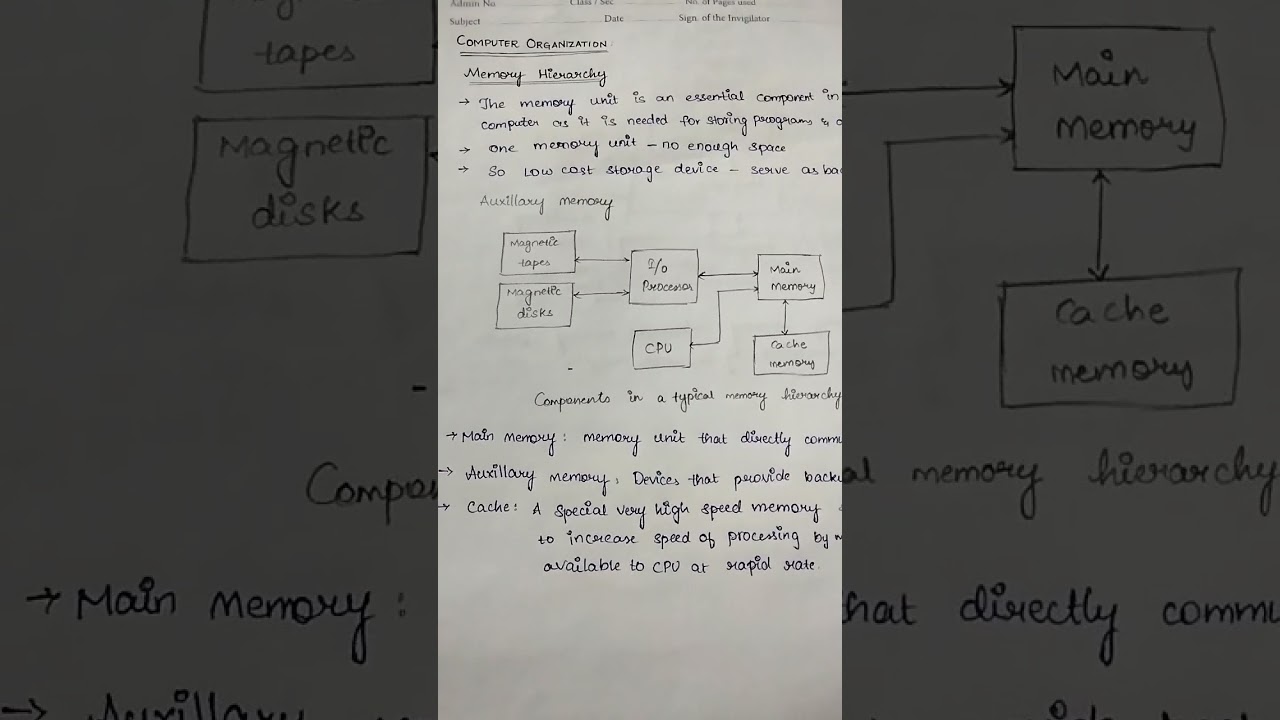 Admin No Class / Sec No. of Pages used
Subject Date Sign. of the Invigilator
COMPUTER ORGANIZATION
Memory Hierarchy
→ The memory unit is an essential component in
computer as it is needed for storing programs &
→ one memory unit – no enough space
→ So Low cost storage device – serve as bac
Auxillary memory
Magnetic
tapes
I/o
Processor
Main
memory
Magnetic
disks
CPU
Cache
memory
Components in a typical memory hierarchy
→ Main memory : memory unit that directly commu
→ Auxillary memory : Devices that provide backu
→ Cache : A special very high speed memory
to increase speed of processing by m
available to CPU at rapid rate.
Magnetic
tapes
Magnetic
disks
Main
memory
Cache
memory
Compo al memory hierarchy
→ Main memory : that directly commu
→ Auxillary